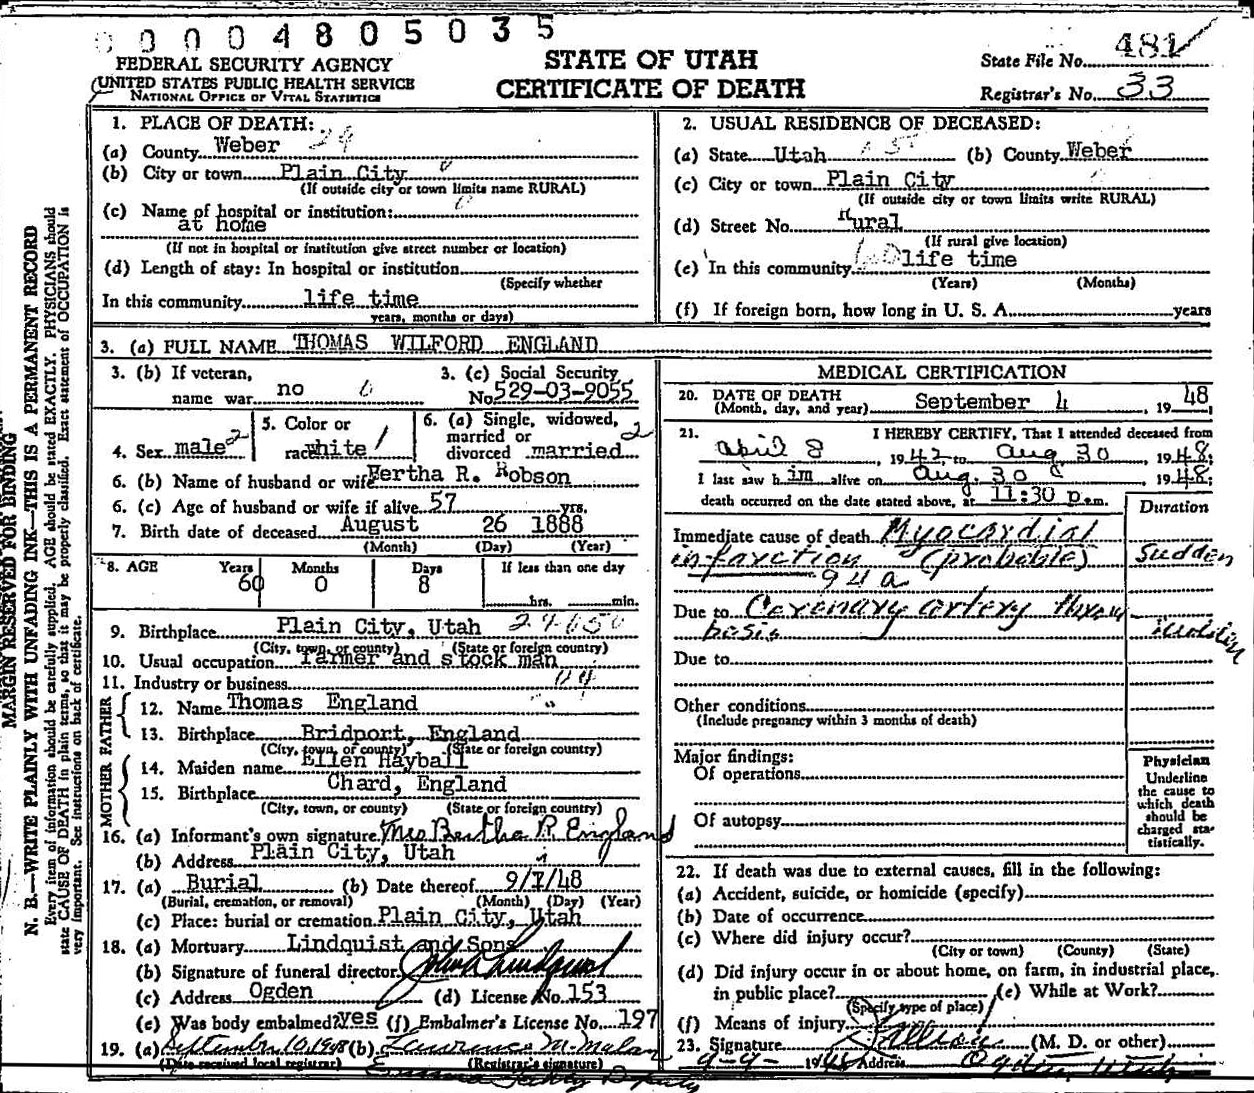 0 0 0 0 4 8 0 5 0 3 5
FEDERAL SECURITY AGENCY
UNITED STATES PUBLIC HEALTH SERVICE
NATIONAL OFFICE OF VITAL STATISTICS
STATE OF UTAH
CERTIFICATE OF DEATH
State File No. 481
Registrar's No. 33
MARGIN RESERVED FOR BINDING
N. B.—WRITE PLAINLY WITH UNFADING INK—THIS IS A PERMANENT RECORD
Every item of information should be carefully supplied. AGE should be stated EXACTLY. PHYSICIANS should
state CAUSE OF DEATH in plain terms, so that it may be properly classified. Exact statement of OCCUPATION is
very important. See instructions on back of certificate.
1. PLACE OF DEATH: 29
(a) County Weber
(b) City or town Plain City
(If outside city or town limits name RURAL)
(c) Name of hospital or institution:
at home
(If not in hospital or institution give street number or location)
(d) Length of stay: In hospital or institution
(Specify whether
In this community life time
years, months or days)
2. USUAL RESIDENCE OF DECEASED:
(a) State Utah (b) County Weber
(c) City or town Plain City
(If outside city or town limits write RURAL)
(d) Street No. Rural
(If rural give location)
(e) In this community life time
(Years) (Months)
(f) If foreign born, how long in U. S. A. years
3. (a) FULL NAME THOMAS WILFORD ENGLAND
3. (b) If veteran,
name war no
3. (c) Social Security
No. 529-03-9055
4. Sex male 2
5. Color or
race white 1
6. (a) Single, widowed,
married or
divorced married 2
6. (b) Name of husband or wife Bertha R. Robson
6. (c) Age of husband or wife if alive 57 yrs.
7. Birth date of deceased August 26 1888
(Month) (Day) (Year)
8. AGE Years Months Days If less than one day
60 0 8
hrs. min.
9. Birthplace Plain City, Utah
(City, town, or county) (State or foreign country)
10. Usual occupation farmer and stock man
11. Industry or business
FATHER
12. Name Thomas England
13. Birthplace Bridport, England
(City, town, or county) (State or foreign country)
MOTHER
14. Maiden name Ellen Hayball
15. Birthplace Chard, England
(City, town, or county) (State or foreign country)
16. (a) Informant's own signature Mrs Bertha R. England
(b) Address Plain City, Utah
17. (a) Burial (b) Date thereof 9/7/48
(Burial, cremation, or removal) (Month) (Day) (Year)
(c) Place: burial or cremation Plain City, Utah
18. (a) Mortuary Lindquist and Sons
(b) Signature of funeral director John Lindquist
(c) Address Ogden (d) License No. 153
(e) Was body embalmed? yes (f) Embalmer's License No. 197
19. (a) September 10, 1948 (b) Lawrence M. Malan
(Date received local registrar) (Registrar's signature)
Deputy
MEDICAL CERTIFICATION
20. DATE OF DEATH
(Month, day, and year) September 4, 1948
21. I HEREBY CERTIFY, That I attended deceased from
April 8, 1942, to Aug 30 1948;
I last saw him alive on Aug. 30, 1948;
death occurred on the date stated above, at 11:30 p.m.
Duration
Immediate cause of death Myocardial
infarction (probable) Sudden
94a
Due to Coronary artery throm
bosis Sudden
Due to
Other conditions
(Include pregnancy within 3 months of death)
Major findings:
Of operations
Of autopsy
Physician
Underline
the cause to
which death
should be
charged sta-
tistically.
22. If death was due to external causes, fill in the following:
(a) Accident, suicide, or homicide (specify)
(b) Date of occurrence
(c) Where did injury occur?
(City or town) (County) (State)
(d) Did injury occur in or about home, on farm, in industrial place,
in public place? (e) While at Work?
(Specify type of place)
(f) Means of injury
23. Signature (M. D. or other)
9-9- 1948 Address Ogden, Utah